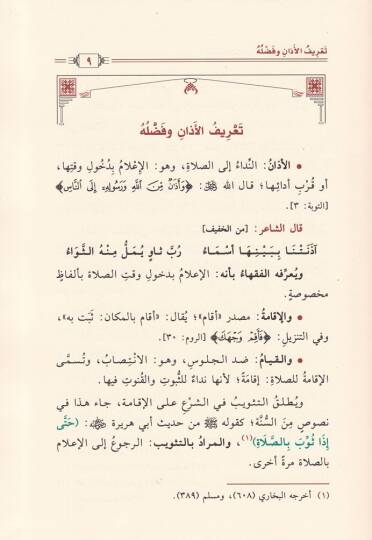 تَعْرِيفُ الأَذَانِ وفَضْلُهُ
٩
تَعْرِيفُ الأَذَانِ وفَضْلُهُ
• الأَذَانُ: النِّداءُ إلى الصلاةِ، وهو: الإِعْلامُ بِدُخُولِ وقتِها،
أو قُرْبِ أدائِها؛ قال الله ﷻ: ﴿وَأَذَٰنٌ مِّنَ ٱللَّهِ وَرَسُولِهِۦٓ إِلَى ٱلنَّاسِ﴾
[التوبة: ٣].
قال الشاعر: [من الخفيف]
آذَنَتْنَا بِبَيْنِهَا أَسْمَاءُ رُبَّ ثَاوٍ يُمَلُّ مِنْهُ الثَّوَاءُ
ويُعرِّفه الفقهاءُ بأنه: الإعلامُ بدخولِ وقتِ الصلاة بألفاظٍ
مخصوصةٍ.
• والإقامةُ: مصدر «أقام»؛ يُقال: «أقام بالمكان: ثَبَت به»،
وفي التنزيل: ﴿فَأَقِمْ وَجْهَكَ﴾ [الروم: ٣٠].
• والقيامُ: ضد الجلوسِ، وهو: الانْتِصابُ، وتُسمَّى
الإقامةُ للصلاةِ: إقامَةً؛ لأنها نداءٌ للثُّبوتِ والقُنوتِ فيها.
ويُطلقُ التثويبُ في الشرْعِ على الإقامة، جاء هذا في
نصوصٍ مِنَ السُّنَّة؛ كقوله ﷺ من حديث أبي هريرة ﷺ: (حَتَّى
إِذَا ثُوِّبَ بِالصَّلَاةِ)(١)، والمرادُ بالتثويب: الرجوعُ إلى الإعلامِ
بالصلاة مرةً أخرى.
(١) أخرجه البخاري (٦٠٨)، ومسلم (٣٨٩).